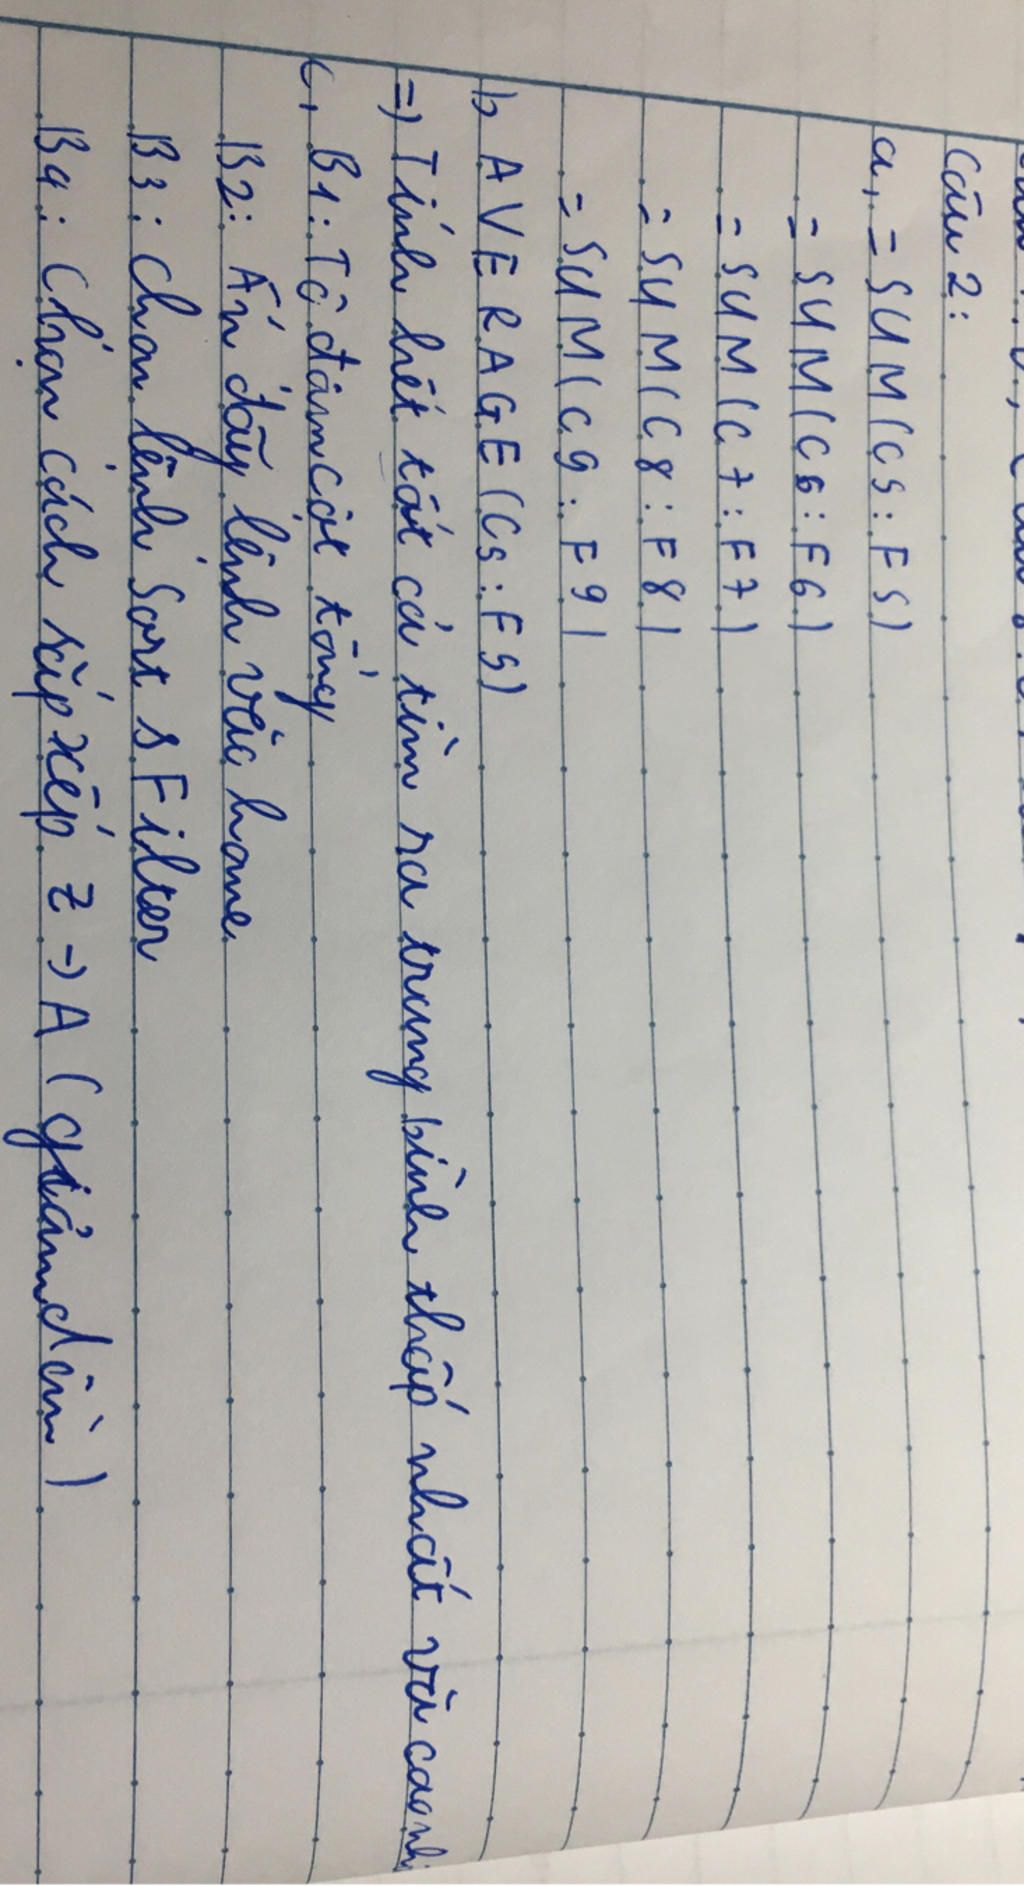 Câu 2:
a, = SUM(C5:F5)
= SUM(C6:F6)
= SUM(C7:F7)
= SUM(C8:F8)
= SUM(C9:F9)
b, AVERAGE(C5:F5)
=> Tính hết tất cả tìm ra trung bình thấp nhất và cao
c, B1: Tô đâm cột tổng
B2: Ấn dãy lệnh vào home
B3: Chọn lệnh Sort s Filter
B4: Chọn cách sắp xếp Z -> A (giảm dần)